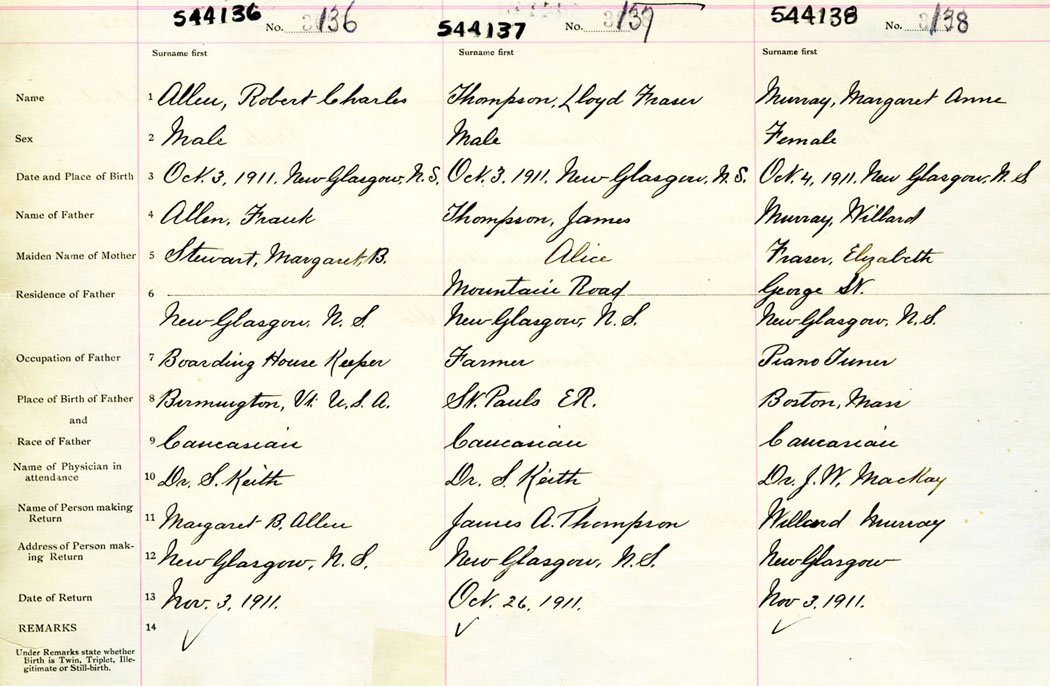 544136 No. 3136 544137 No. 3137 544138 No. 3138
Surname first Surname first Surname first
Name 1 Allen, Robert Charles Thompson, Lloyd Fraser Murray, Margaret Anne
Sex 2 Male Male Female
Date and Place of Birth 3 Oct. 3, 1911. New Glasgow, N.S. Oct. 3, 1911. New Glasgow, N.S. Oct. 4, 1911. New Glasgow, N.S
Name of Father 4 Allen, Frank Thompson, James Murray, Willard
Maiden Name of Mother 5 Stewart, Margaret, B. Alice Fraser, Elizabeth
Mountain Road George St.
Residence of Father 6
New Glasgow, N.S. New Glasgow, N.S. New Glasgow, N.S.
Occupation of Father 7 Boarding House Keeper Farmer Piano Tuner
Place of Birth of Father 8 Bermington, Vt. U.S.A. St. Pauls E.R. Boston, Mass
and
Race of Father 9 Caucasian Caucasian Caucasian
Name of Physician in
attendance 10 Dr. S. Keith Dr. S. Keith Dr. J. W. MacKay
Name of Person making
Return 11 Margaret B. Allen James A. Thompson Willard Murray
Address of Person mak-
ing Return 12 New Glasgow, N.S. New Glasgow, N.S. New Glasgow
Date of Return 13 Nov. 3, 1911. Oct. 26, 1911. Nov 3, 1911.
REMARKS 14
Under Remarks state whether
Birth is Twin, Triplet, Ille-
gitimate or Still-birth.